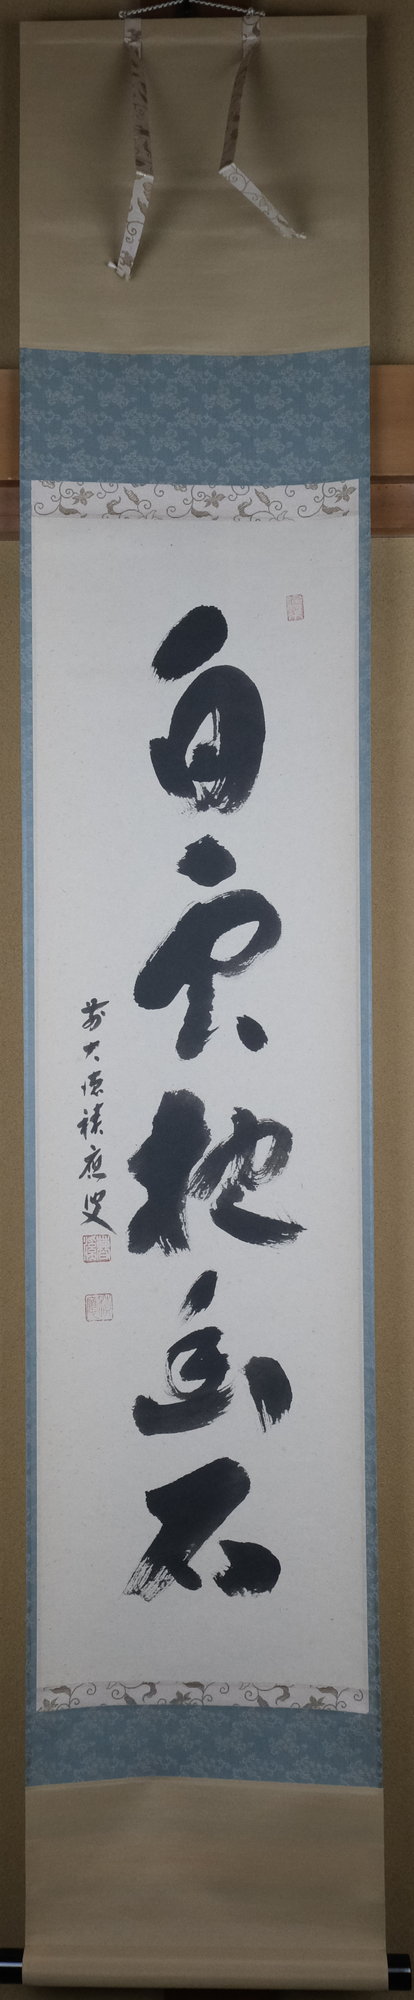 白雲抱幽石
前大徳積應叟